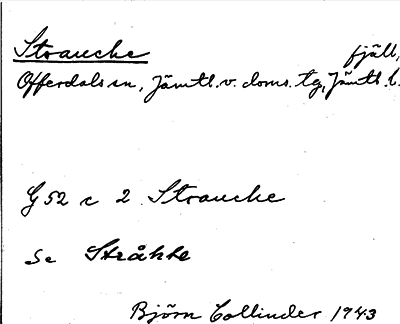 Straucke fjäll,
Offerdals sn, Jämtl. v. doms. tg, Jämtl. l.
G 52 c 2 Straucke
Se Stråkke
Björn Collinder 1943